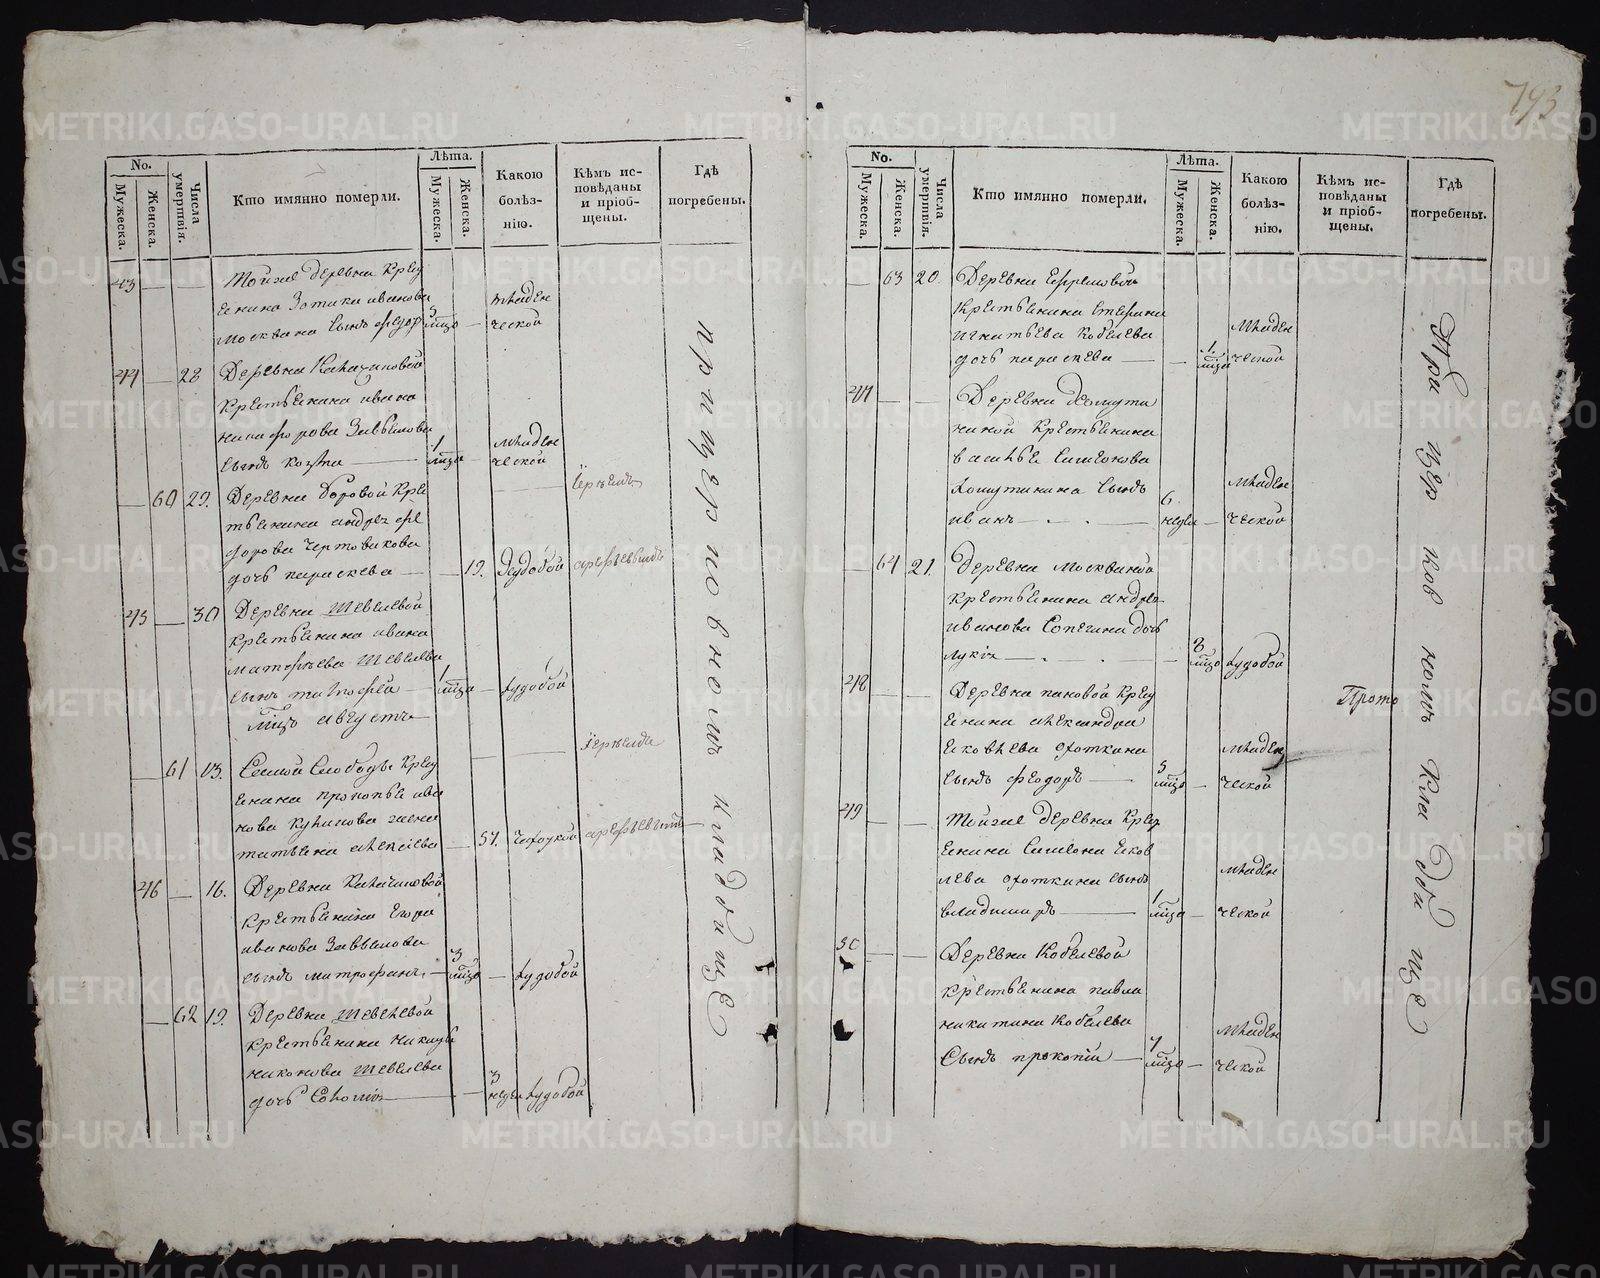 793
No.
Мужеска.
Женска.
Числа умертвія.
Кто имянно померли.
Лѣта.
Мужеска.
Женска.
Какою болѣз-
нію.
Кѣмъ ис-
повѣданы
и пріоб-
щены.
Гдѣ
погребены.
43 — —
Тойже деревни Крес
янина Зотика иванова
москвина сынъ федор
3 мцо — младен
ческой
44 — 28
Деревни
Крестьянина ивана
никифорова Завьялова
сынъ козма — 1 мцо — младен
ческой
— 60 29.
Деревни боровой Кре
стьянина андрея фе
дорова Чертовикова
дочь параскева — 19. Худобой
Іереемъ
арефьевымъ
45 — 30
Деревни Шевелевой
крестьянина ивана
матфѣева Шевелева
сынъ тимофей — 1 мцо — худобой
мцъ августъ
— 61 13.
Самой Слободы Крес
янина прокопья ива
нова куликова жена
татьяна алексіева — 57. чахоткой
Іереемъ
арефьевымъ
46 — 16.
Деревни
крестьянина Егора
иванова Завьялова
сынъ митрофанъ — 3 мцо — худобой
— 62 19.
Деревни Шевелевой
крестьянина никиты
никонова Шевелева
дочь Соломія — 3 недел худобой
при церковномъ кладбище
No.
Мужеска.
Женска.
Числа умертвія.
Кто имянно померли.
Лѣта.
Мужеска.
Женска.
Какою
болѣз-
нію.
Кѣмъ ис-
повѣданы
и пріоб-
щены.
Гдѣ
погребены.
— 63 20.
Деревни Ефремовой
крестьянина стефана
игнатьева Кобелева
дочь параскева — — 1. мца младен
ческой
47 — —
Деревни Хомути
ниной крестьянина
василья симеонова
Хомутинина сынъ
иванъ — 6. недел — младен
ческой
— 64 21.
Деревни москвиной
крестьянина андрея
иванова Сопегина дочь
лукія — — 8 мцо худобой
48 — —
Деревни пановой Крес
янина александра
яковлева охоткина
сынъ феодоръ — 5 мцо — младен
ческой
Прото
49 — —
Тойже деревни Крес
янина симеона яков
лева охоткина сынъ
владимиръ — 1 мцо — младен
ческой
50 — —
Деревни Кобелевой
крестьянина павла
никитина Кобелева
Сынъ прокопій — 7 мцо — младен
ческой
При церковномъ кладбище
METRIKI.GASO-URAL.RU